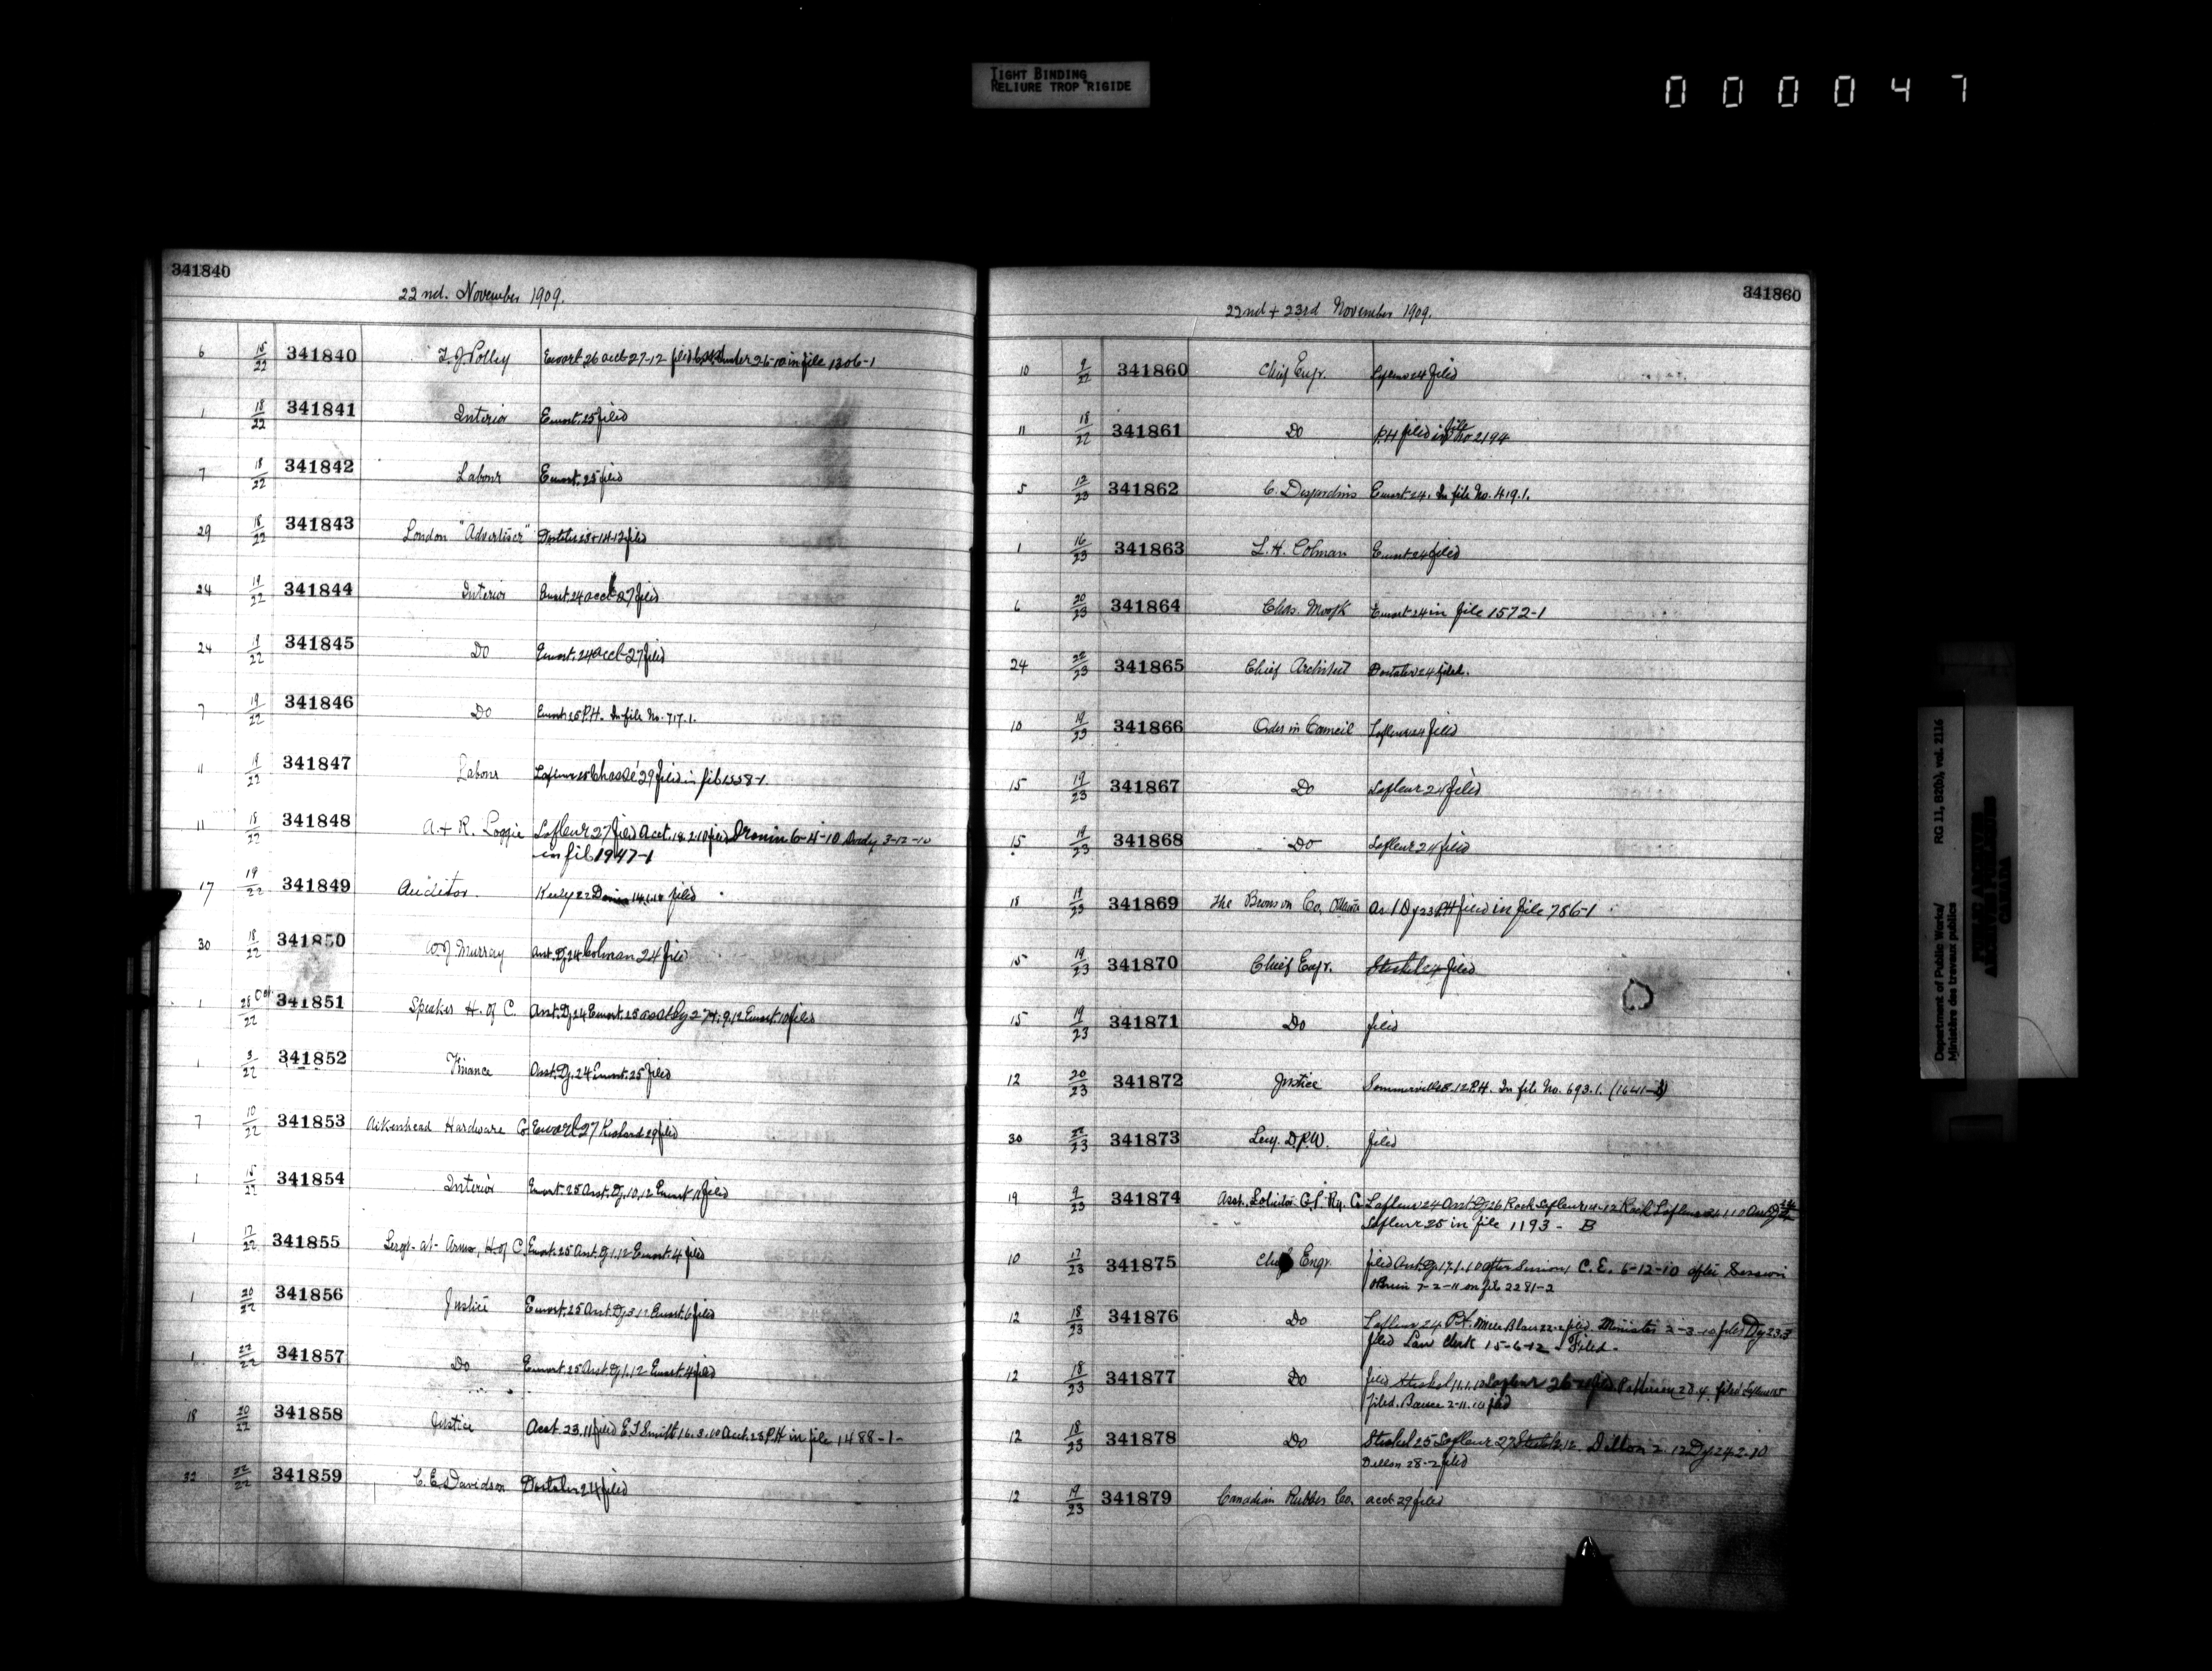 TIGHT BINDING
RELIURE TROP RIGIDE
0 0 0 0 4 7
341840
22nd. November 1909.
6 15/22 341840 T. J. Polley Ewart 26 acct 27-12 filed 26-10 in file 1306-1
1 18/22 341841 Interior Ewart. 25 filed
7 18/22 341842 Labour Ewart. 25 filed
29 18/22 341843 London "Advertiser" filed
24 19/22 341844 Interior Ewart. 24 acct 27 filed
24 19/22 341845 Do Ewart. 24 acct 27 filed
7 19/22 341846 Do Ewart 25 P.H. In file No. 717.1.
11 19/22 341847 Labour Lafleur 25 Chassé 29 filed in file 1558-1.
11 18/22 341848 A. + R. Loggie Lafleur 27 filed Acct. 18.2.10 filed 6-4-10 3-12-10
in file 1947-1
17 19/22 341849 Auditor. filed
30 18/22 341850 W. J. Murray Asst. Dy. 24 Colman 24 filed
1 28 Oct/22 341851 Speaker H. of C. Asst. Dy. 24 Ewart. 25 Ewart. 10 filed
1 3/22 341852 Finance Asst. Dy. 24 Ewart. 25 filed
7 10/22 341853 Aikenhead Hardware Co Ewart 27 29 filed
1 15/22 341854 Interior Ewart. 25 Asst. Dy. 10.12 Ewart 11 filed
1 17/22 341855 Sergt-at-Arms, H. of C. Ewart. 25 Asst. Dy 1.12 Ewart. 4 filed
1 20/22 341856 Justice Ewart. 25 Asst. Dy 3.12 Ewart. 6 filed
1 22/22 341857 Do Ewart 25 Asst. Dy 1.12 Ewart. 4 filed
18 20/22 341858 Justice Acct. 23.11 filed E. T. Smith 16.3.10 Acct. 23 P.H in file 1488-1-
32 22/22 341859 C. E. Davidson 24 filed
341860
22nd + 23rd November 1909.
10 9/22 341860 Chief Engr. 24 filed
11 18/22 341861 Do P.H filed in file No 2194
5 12/23 341862 C. Desjardins Ewart 24. In file No. 419.1.
1 16/23 341863 L. H. Colman Ewart 24 filed
6 20/23 341864 Chas. Ewart 24 in file 1572-1
24 22/23 341865 Chief Architect 24 filed.
10 19/23 341866 Order in Council Lafleur 24 filed
15 19/23 341867 Do Lafleur 24 filed
15 19/23 341868 Do Lafleur 24 filed
18 19/23 341869 The Bronson Co, Ottawa As / Dy 23 P.H filed in file 786-1
15 19/23 341870 Chief Engr. Steckel 24 filed
15 19/23 341871 Do filed
12 20/23 341872 Justice P.H. In file No. 693.1.
30 22/23 341873 Secy. D.P.W. filed
19 9/23 341874 Asst. Solicitor G.T. Ry. Co Lafleur 24 Asst. Dy 26
Lafleur 25 in file 1193 - B
10 17/23 341875 Chief Engr. filed Asst. Dy. 17.1.10 after Session, C. E. 6-12-10 after Session
7-2-11 on file 2281-2
12 18/23 341876 Do Lafleur 24 filed. Minister 2-3-10 filed Dy 23.3
filed Law Clerk 15-6-12 - Filed -
12 18/23 341877 Do filed Steckel 11.1.10 Lafleur
filed. 2-11.10 filed
12 18/23 341878 Do Steckel 25 Lafleur 27 Dillon 2.12 Dy 24.2.10
Dillon 28-2 filed
12 19/23 341879 Canadian Rubber Co. acct 29 filed
Department of Public Works/ RG 11, B2(b), vol. 2116
Ministère des travaux publics
CANADA